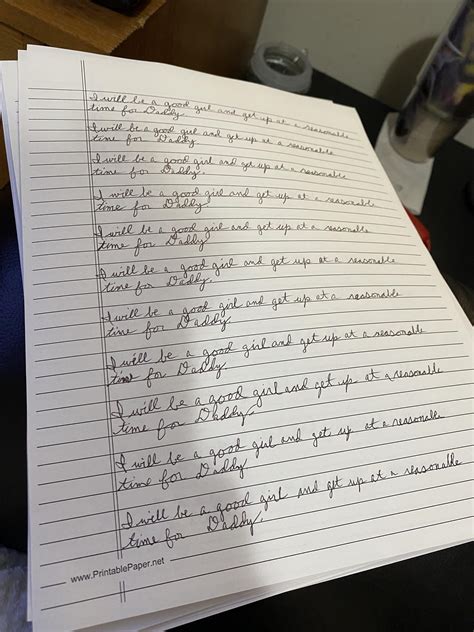 I will be a good girl and get up at a reasonable
time for Daddy.
I will be a good girl and get up at a reasonable
time for Daddy.
I will be a good girl and get up at a reasonable
time for Daddy.
I will be a good girl and get up at a reasonable
time for Daddy.
I will be a good girl and get up at a reasonable
time for Daddy.
I will be a good girl and get up at a reasonable
time for Daddy.
I will be a good girl and get up at a reasonable
time for Daddy.
I will be a good girl and get up at a reasonable
time for Daddy.
I will be a good girl and get up at a reasonable
time for Daddy.
I will be a good girl and get up at a reasonable
time for Daddy.
I will be a good girl and get up at a reasonable
time for Daddy.
www.PrintablePaper.net